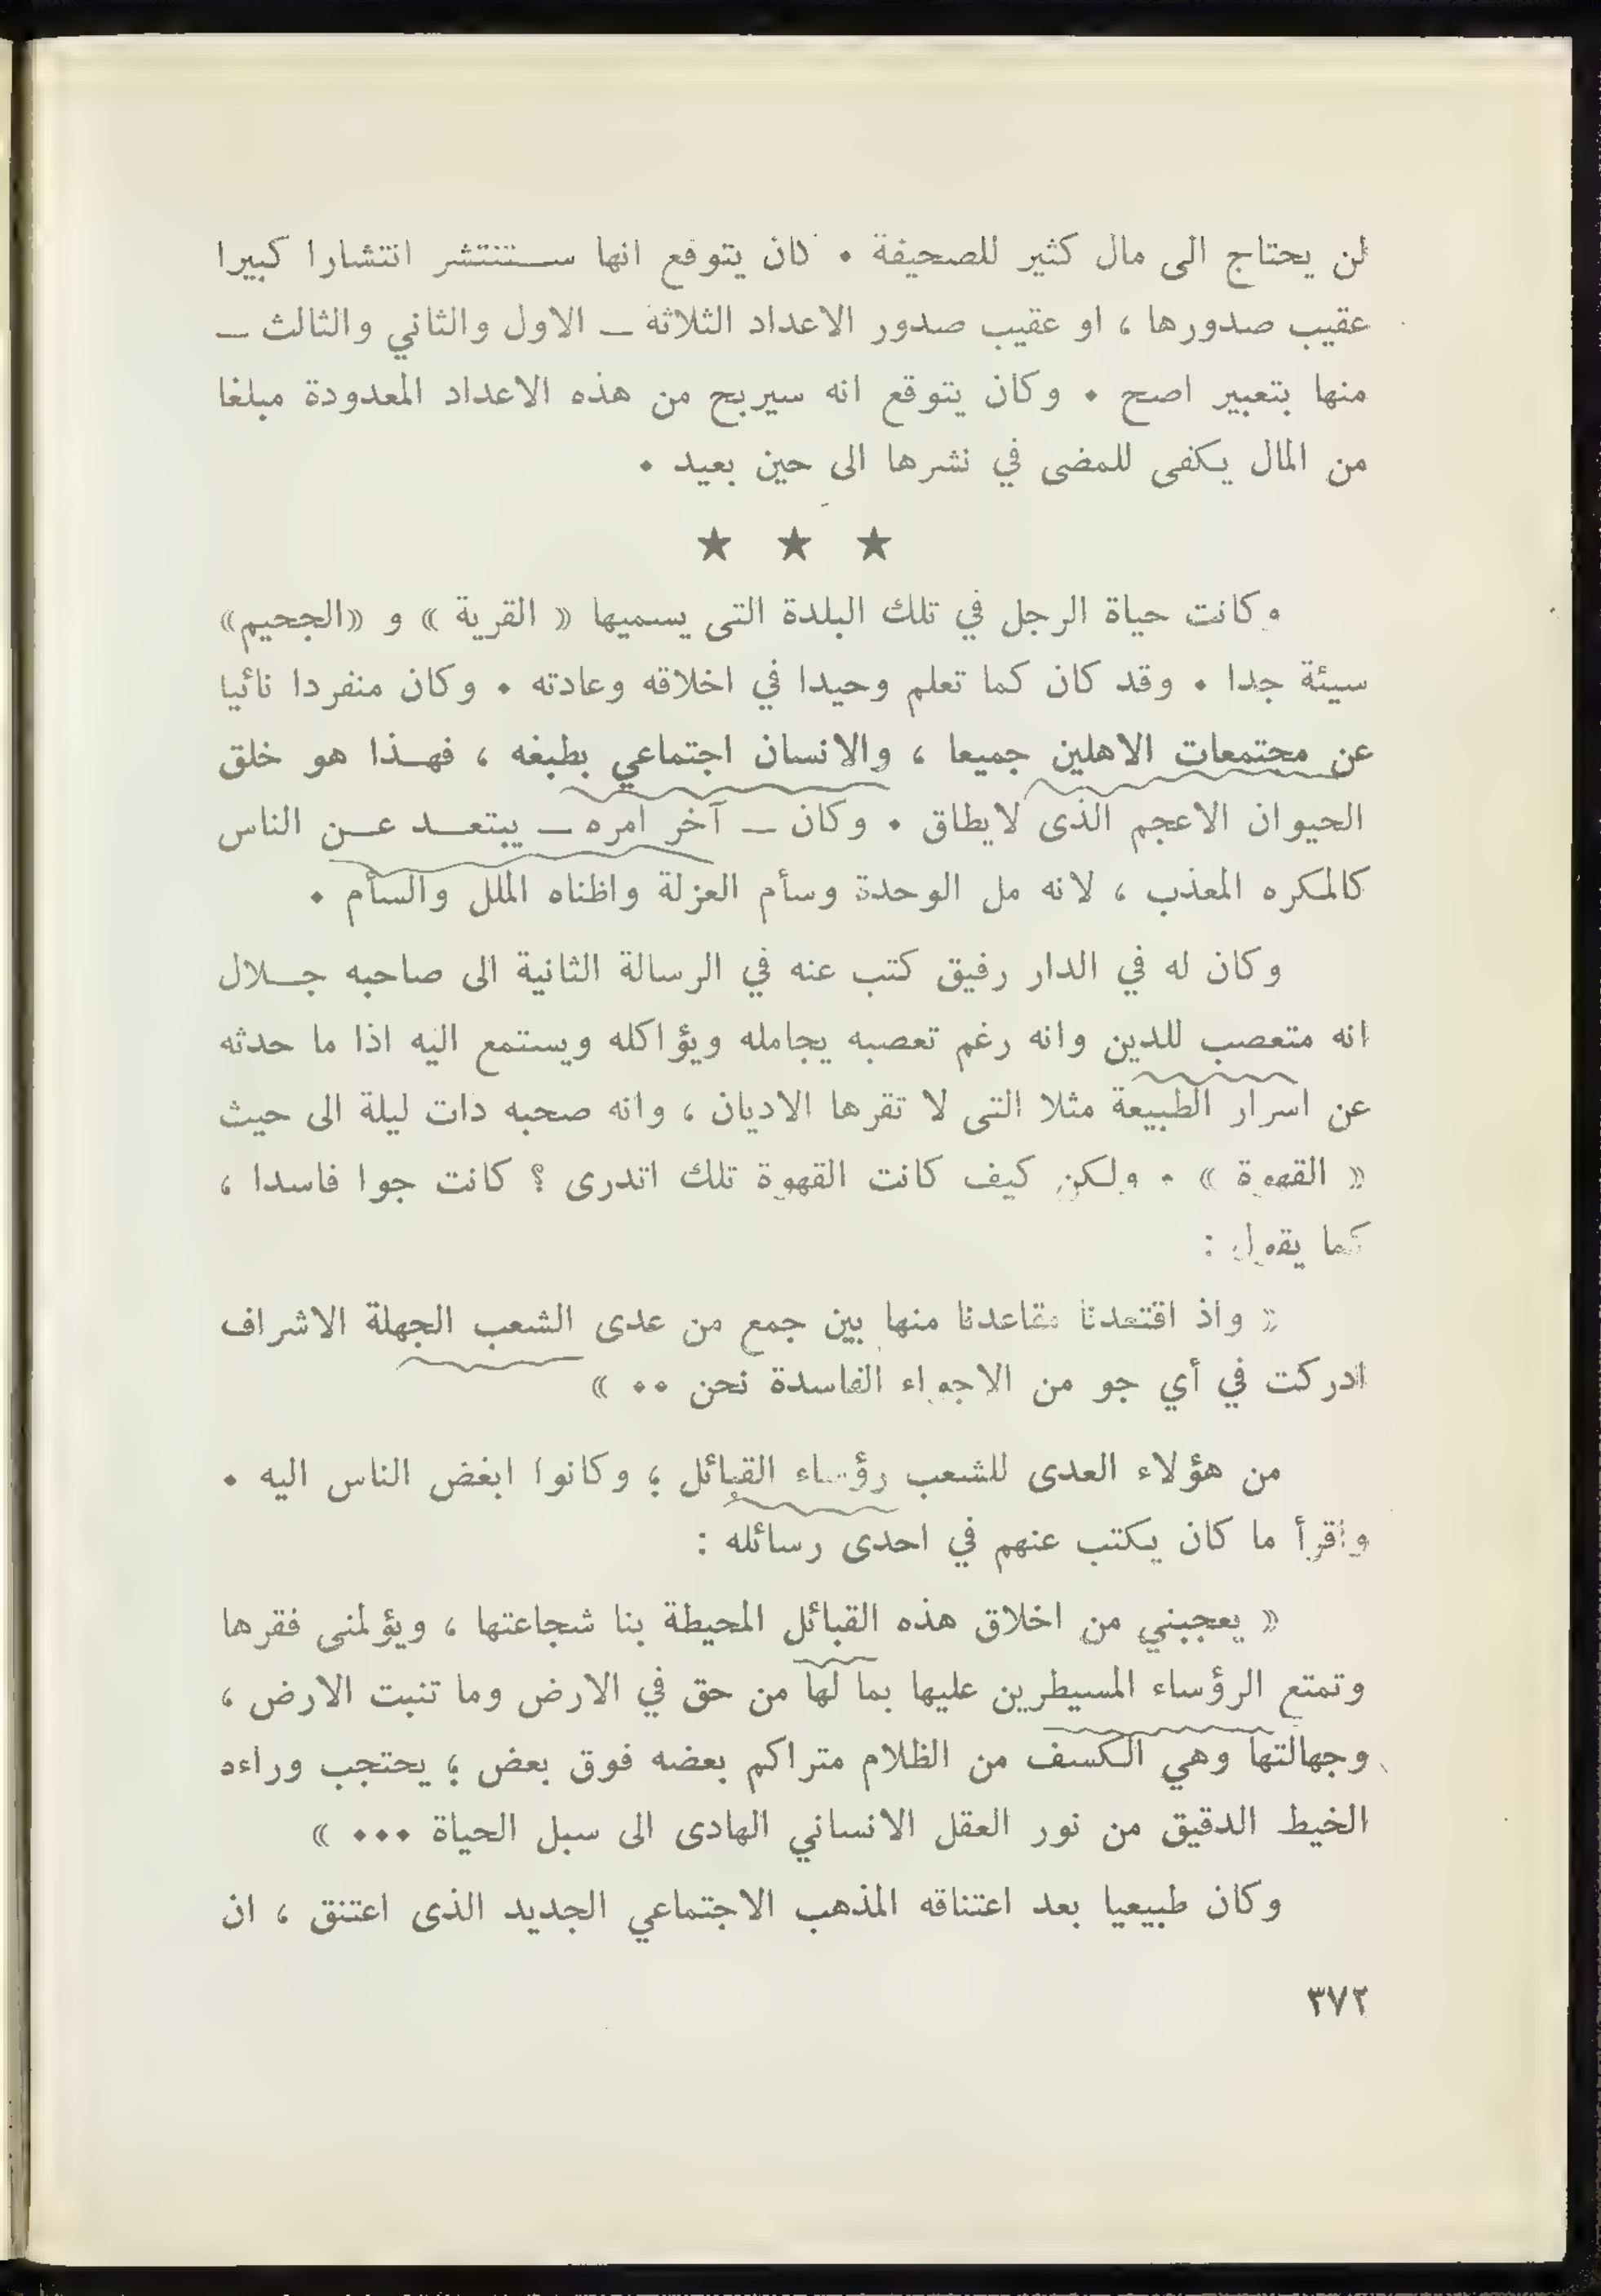 لن يحتاج الى مال كثير للصحيفة . كان يتوقع انها ستنتشر انتشارا كبيرا
عقيب صدورها ، او عقيب صدور الاعداد الثلاثة ــ الاول والثاني والثالث ــ
منها بتعبير اصح . وكان يتوقع انه سيربح من هذه الاعداد المعدودة مبلغا
من المال يكفى للمضى في نشرها الى حين بعيد .
★ ★ ★
وكانت حياة الرجل في تلك البلدة التى يسميها « القرية » و «الجحيم»
سيئة جدا . وقد كان كما تعلم وحيدا في اخلاقه وعادته . وكان منفردا نائيا
عن مجتمعات الاهلين جميعا ، والانسان اجتماعي بطبغه ، فهذا هو خلق
الحيوان الاعجم الذى لايطاق . وكان ــ آخر امره ــ يبتعد عن الناس
كالمكره المعذب ، لانه مل الوحدة وسأم العزلة واظناه الملل والسأم .
وكان له في الدار رفيق كتب عنه في الرسالة الثانية الى صاحبه جلال
انه متعصب للدين وانه رغم تعصبه يجامله ويؤاكله ويستمع اليه اذا ما حدثه
عن اسرار الطبيعة مثلا التى لا تقرها الاديان ، وانه صحبه ذات ليلة الى حيث
« القهوة » . ولكن كيف كانت القهوة تلك اتدرى ؟ كانت جوا فاسدا ،
كما يقول :
« واذ اقتعدنا مقاعدنا منها بين جمع من عدى الشعب الجهلة الاشراف
ادركت في أي جو من الاجواء الفاسدة نحن .. »
من هؤلاء العدى للشعب رؤساء القبائل ؛ وكانوا ابغض الناس اليه .
واقرأ ما كان يكتب عنهم في احدى رسائله :
« يعجبني من اخلاق هذه القبائل المحيطة بنا شجاعتها ، ويؤلمنى فقرها
وتمتع الرؤساء المسيطرين عليها بما لها من حق في الارض وما تنبت الارض ،
وجهالتها وهي الكسف من الظلام متراكم بعضه فوق بعض ؛ يحتجب وراءه
الخيط الدقيق من نور العقل الانساني الهادى الى سبل الحياة ... »
وكان طبيعيا بعد اعتناقه المذهب الاجتماعي الجديد الذى اعتنق ، ان
٣٧٢